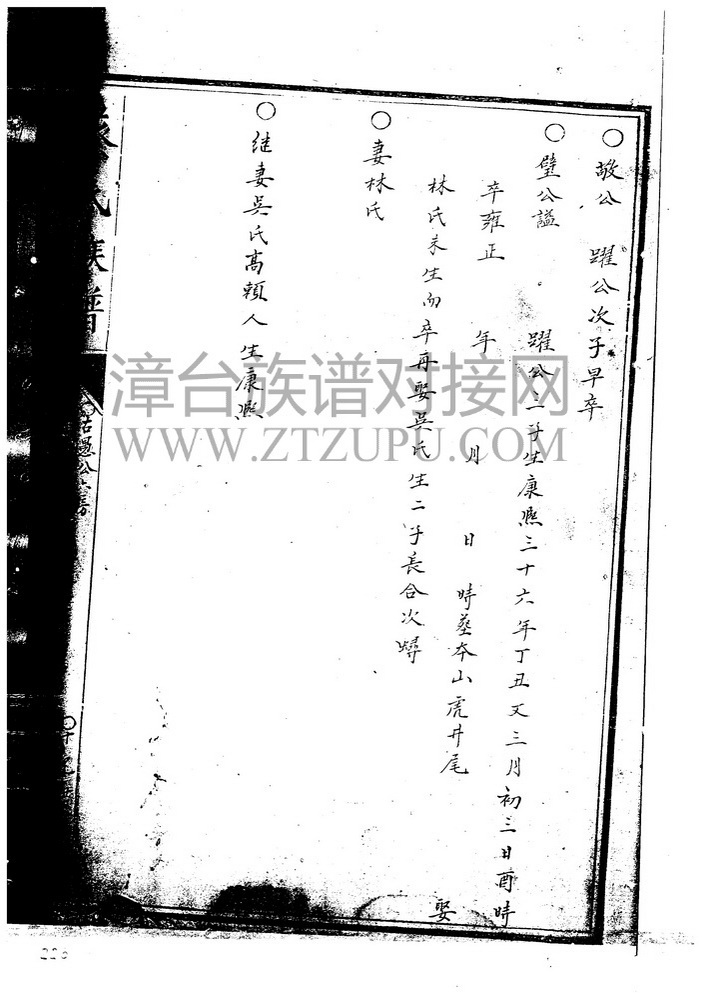 ○敬公 躍公次子早卒
○璧公諡 躍公三子生康熙三十六年丁丑又三月初三日酉時
卒雍正 年 月 日 時墓本山虎井尾 娶
林氏未生而卒再娶吳氏生二子長合次
○妻林氏
○继妻吳氏高賴人生康熙
族譜
漳台族谱对接网
WWW.ZTZUPU.COM